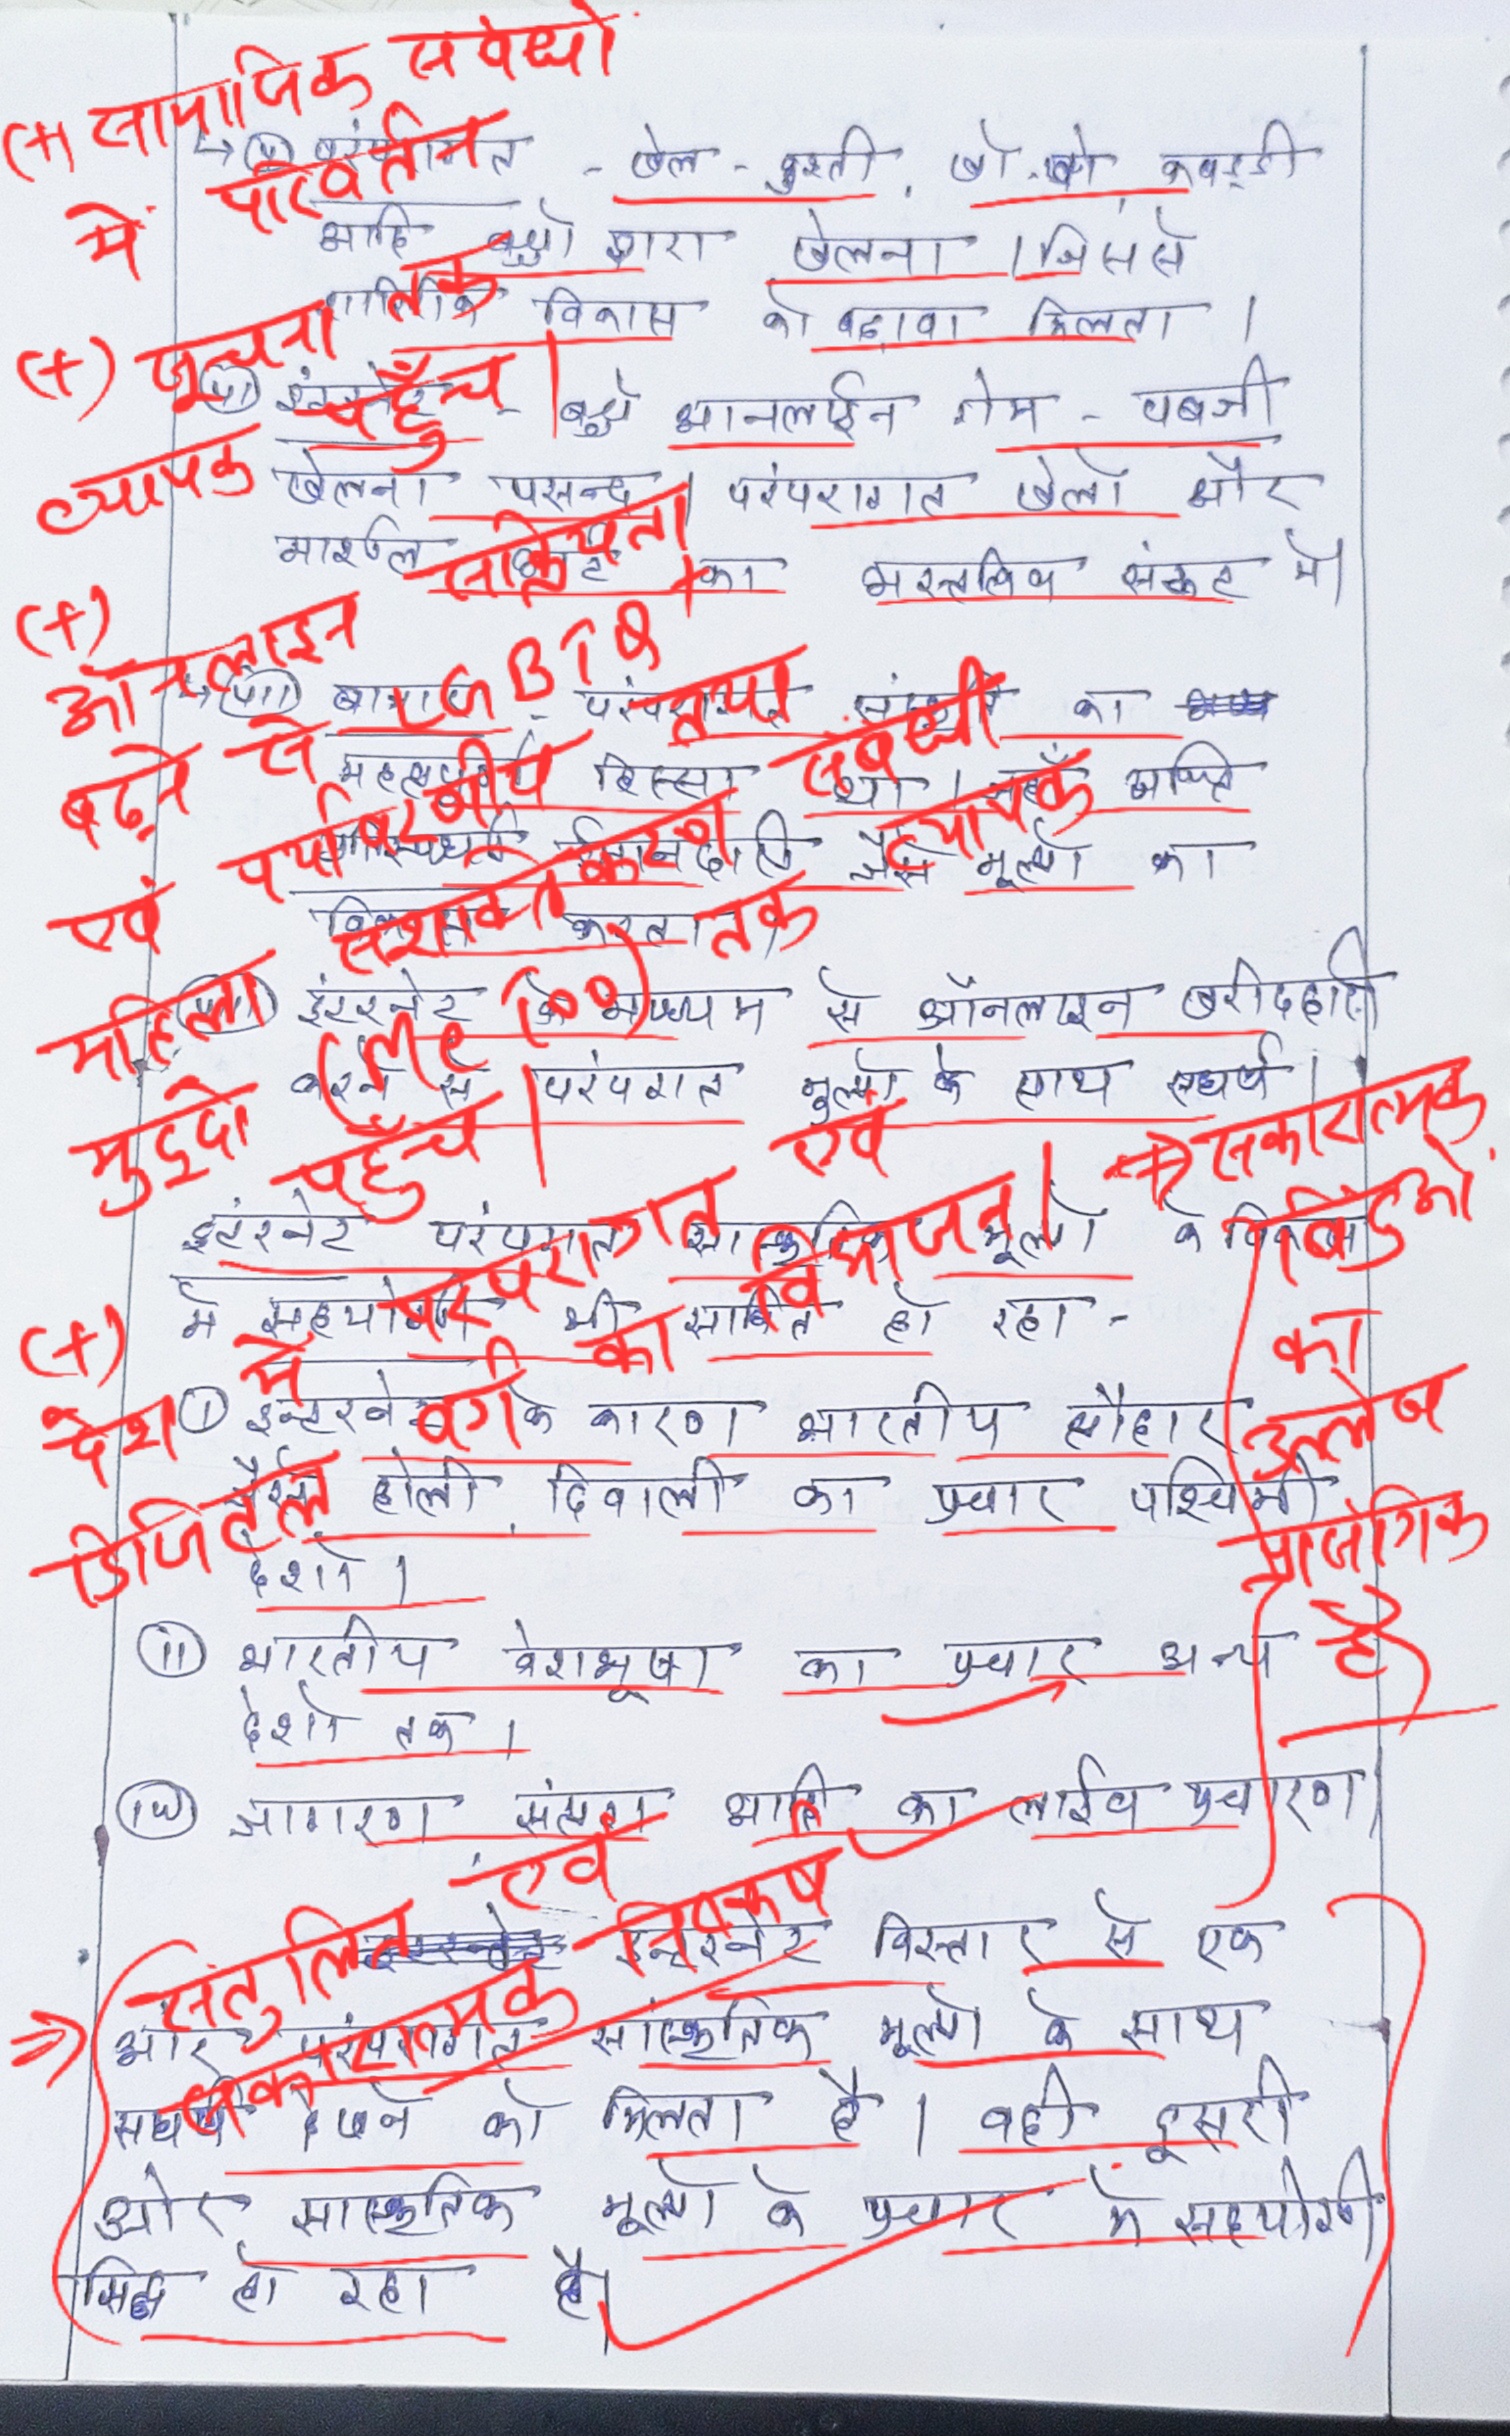 (+) सामाजिक संबंधों
में परिवर्तन
→ (v) परंपरागत - खेल - कुश्ती, खो-खो कबड्डी
आदि बच्चों द्वारा खेलना। जिससे
शारीरिक विकास को बढ़ावा मिलता।
(+) सूचना तक
व्यापक पहुँच।
(vi) इंटरनेट - बच्चे आनलाईन गेम - पबजी
खेलना पसन्द। परंपरागत खेलों और
मार्शल आर्ट का अस्तित्व संकट में।
(+)
ऑनलाइन सक्रियता
बढ़ने से LGBTQ+
एवं पर्यावरणीय तथा
महिला सशक्तिकरण संबंधी
मुद्दों (Me Too) तक व्यापक
पहुँच।
→ (vii) बाजार - परंपरागत संस्कृति का
महत्वपूर्ण हिस्सा था। जहाँ
ईमानदारी जैसे मूल्यों का
विकास करता
इंटरनेट के माध्यम से ऑनलाइन खरीददारी
करने से परंपरागत मूल्यों के साथ संघर्ष।
इंटरनेट परंपरागत सांस्कृतिक मूल्यों के विकास
में सहयोगी भी साबित हो रहा -
(+)
देश में परंपरागत एवं
डिजिटल वर्ग का विभाजन।
→ सकारात्मक
बिंदुओं
का
उल्लेख
प्रासंगिक
है
(i) इन्टरनेट के कारण भारतीय त्यौहार
जैसे होली, दिवाली का प्रचार पश्चिमी
देशों।
(ii) भारतीय वेशभूषा का प्रचार अन्य
देशों तक।
जागरण संध्या आदि का लाईव प्रचारण।
⇒ संतुलित एवं
सकारात्मक निष्कर्ष
इन्टरनेट विस्तार से एक
ओर परंपरागत सांस्कृतिक मूल्यों के साथ
संघर्ष देखने को मिलता है। वही दूसरी
ओर सांस्कृतिक मूल्यों के प्रचार में सहयोगी
सिद्ध हो रहा है।